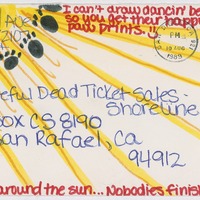 I can't draw dancin' be
so you get their happy
paw prints.
PM
1989
eful Dead Ticket Sales -
Shoreline
Box CS 8190
an Rafael, Ca
94912
around the sun... Nobodies finish